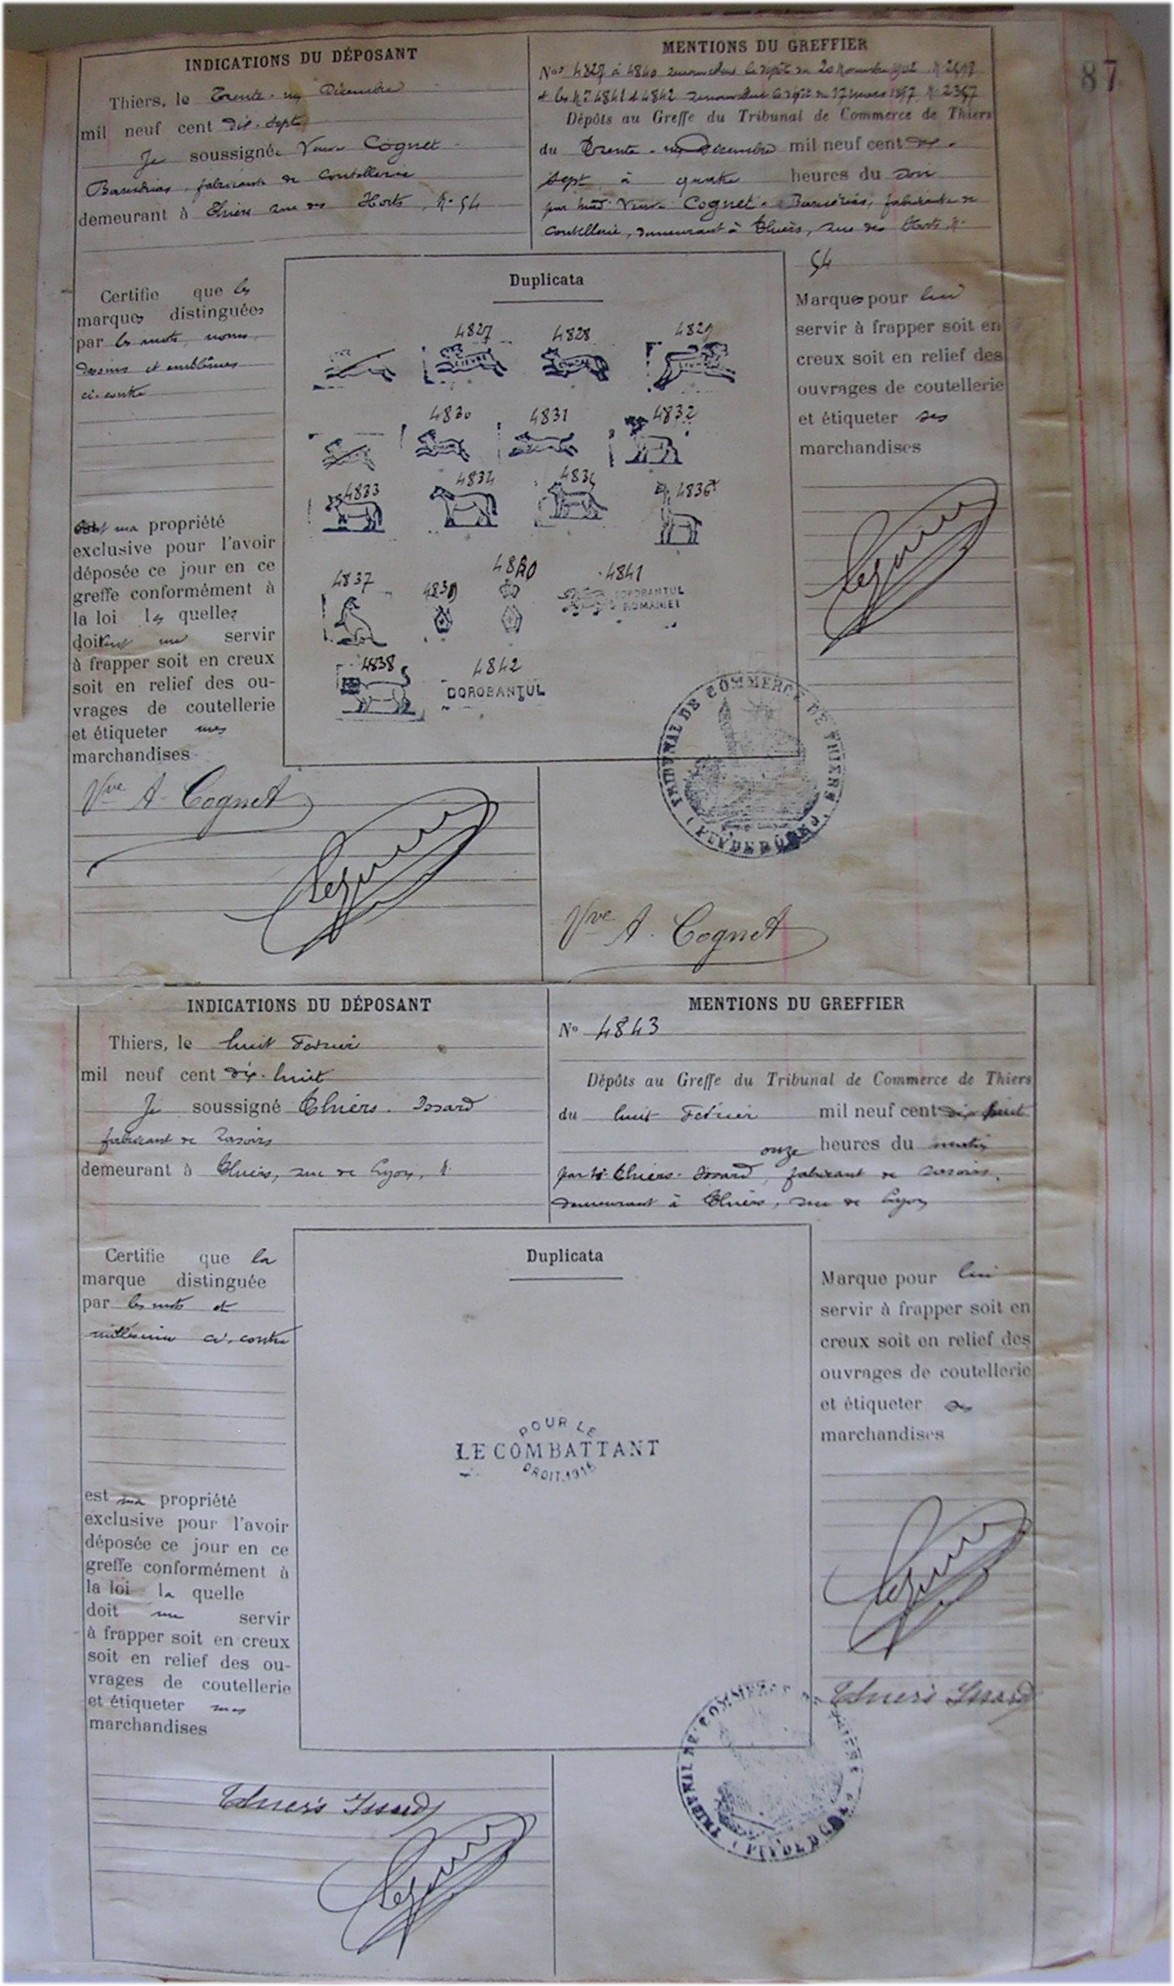 87
INDICATIONS DU DÉPOSANT
Thiers, le Trente-un Décembre
mil neuf cent dix-sept
Je soussignée Veuve Cognet
fabricante de Coutellerie
demeurant à Thiers rue des Horts, No 54
MENTIONS DU GREFFIER
Nos 4827 à 4840 le dépôt du 20 Novembre 1902
et les Nos 4841 et 4842 le dépôt du 17 mars 1897 No 2357
Dépôts au Greffe du Tribunal de Commerce de Thiers
du Trente-un Décembre mil neuf cent dix-
sept à quatre heures du soir
par Mad. Veuve Cognet fabricante de
Coutellerie, demeurant à Thiers, rue des Horts, No
54
Certifie que les
marques distinguées
par les mots, noms,
dessins et emblèmes
ci-contre
ma propriété
exclusive pour l'avoir
déposée ce jour en ce
greffe conformément à
la loi les quelles
doivent me servir
à frapper soit en creux
soit en relief des ou-
vrages de coutellerie
et étiqueter mes
marchandises
Duplicata
4827 4828 4829
4830 4831 4832
4833 4834 4835 4836
4837 4839 4840 4841
DOROBANTUL
ROMANIEI
4838 4842
DOROBANTUL
Marques pour lui
servir à frapper soit en
creux soit en relief des
ouvrages de coutellerie
et étiqueter ses
marchandises
TRIBUNAL DE COMMERCE DE THIERS
(PUY DE DÔME)
Vve A. Cognet
Vve A. Cognet
INDICATIONS DU DÉPOSANT
Thiers, le huit Février
mil neuf cent dix-huit
Je soussigné Thiers-Issard
fabricant de rasoirs
demeurant à Thiers, rue de Lyon, No
MENTIONS DU GREFFIER
No 4843
Dépôts au Greffe du Tribunal de Commerce de Thiers
du huit Février mil neuf cent dix huit
onze heures du matin
par Mr Thiers-Issard, fabricant de rasoirs,
demeurant à Thiers, rue de Lyon
Certifie que la
marque distinguée
par les mots et
millésime ci-contre
est ma propriété
exclusive pour l'avoir
déposée ce jour en ce
greffe conformément à
la loi la quelle
doit me servir
à frapper soit en creux
soit en relief des ou-
vrages de coutellerie
et étiqueter mes
marchandises
Duplicata
POUR LE
LE COMBATTANT
DROIT.1915
Marque pour lui
servir à frapper soit en
creux soit en relief des
ouvrages de coutellerie
et étiqueter ses
marchandises
Thiers Issard
TRIBUNAL DE COMMERCE DE THIERS
(PUY DE DÔME)
Thiers Issard